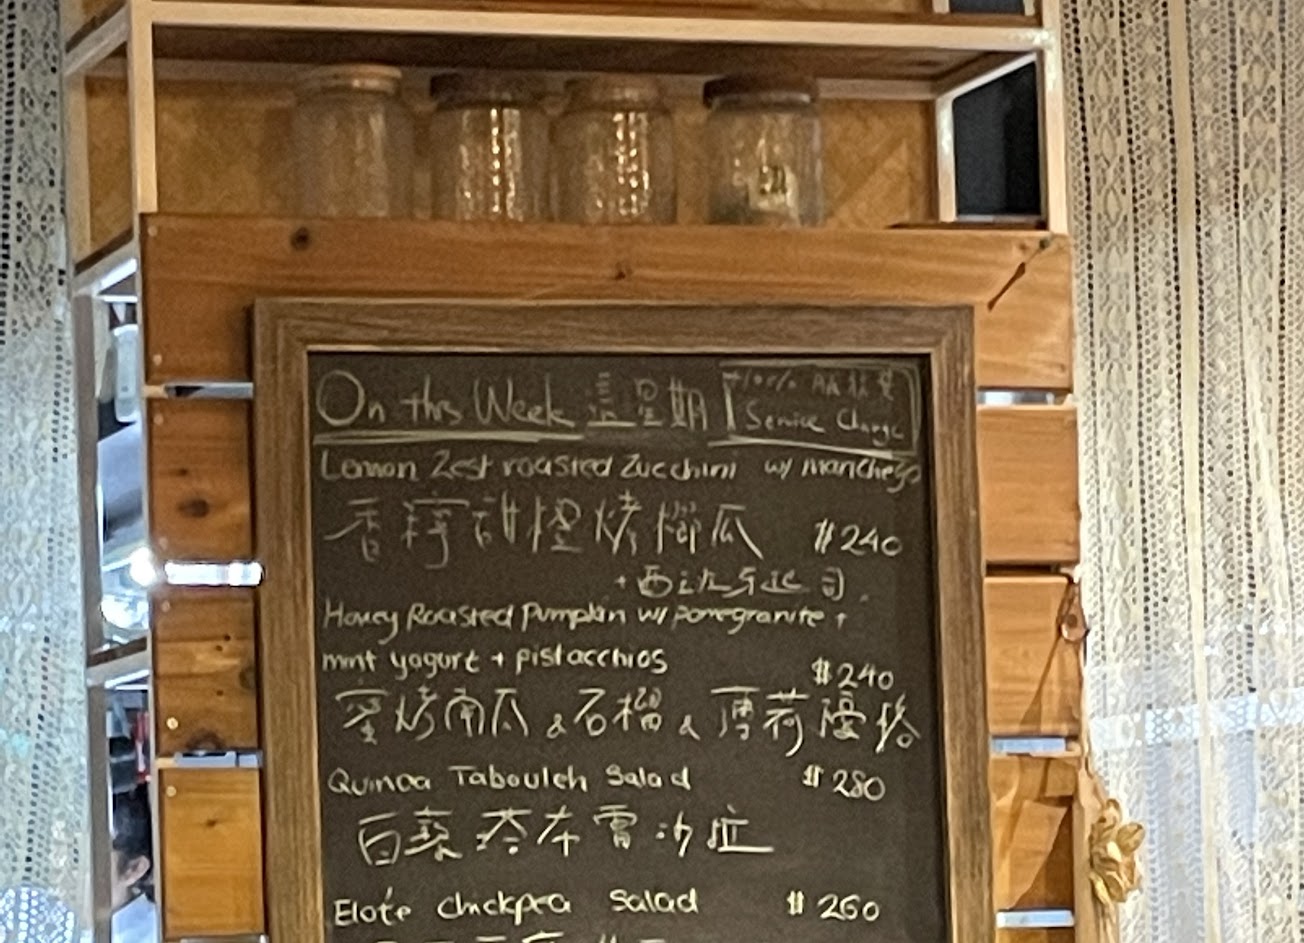 On this Week 這星期
+10% 服務費
Service Charge
Lemon Zest roasted Zucchini w/ manchego
香檸甜橙烤櫛瓜 $240
+ 西班牙起司
Honey Roasted Pumpkin w/ pomegranite +
mint yogurt + pistacchios $240
蜜烤南瓜 & 石榴 & 薄荷優格
Quinoa Tabouleh Salad $280
白藜塔布雷沙拉
Elote Chickpea Salad $260